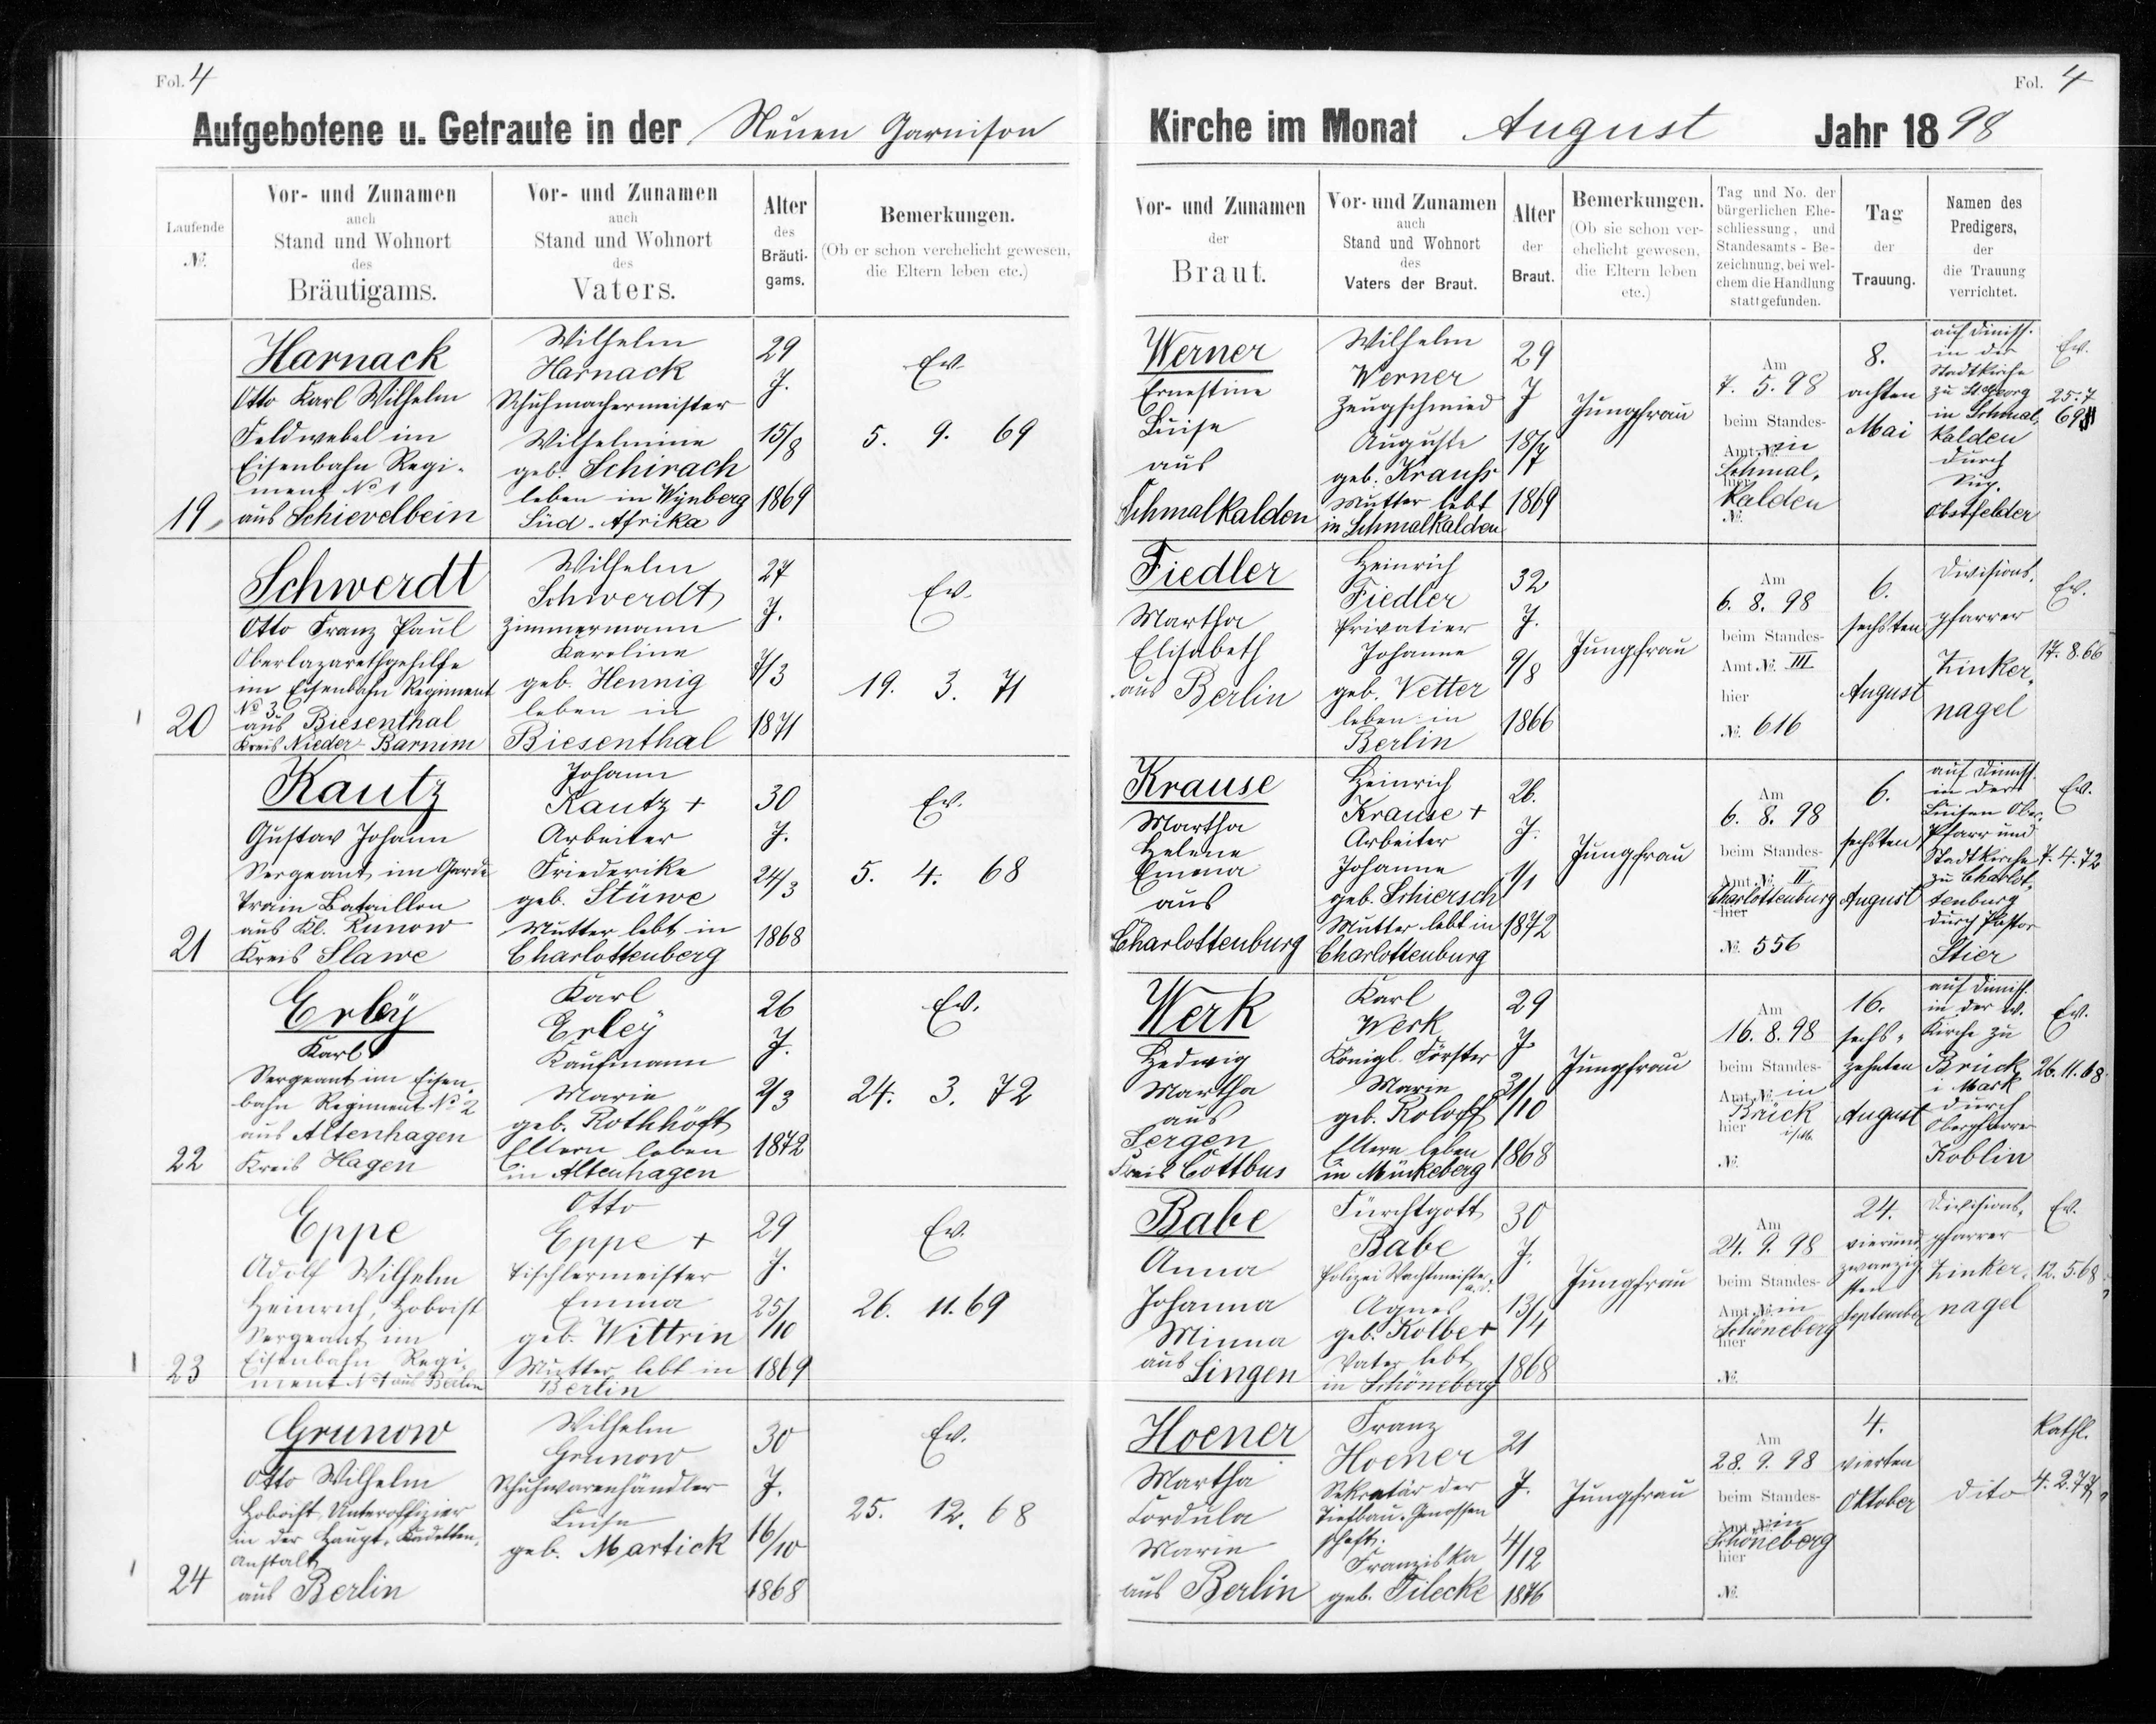 Fol. 4
Aufgebotene u. Getraute in der Neuen Garnison
Laufende
№.
Vor- und Zunamen
auch
Stand und Wohnort
des
Bräutigams.
Vor- und Zunamen
auch
Stand und Wohnort
des
Vaters.
Alter
des
Bräuti-
gams.
Bemerkungen.
(Ob er schon verehelicht gewesen,
die Eltern leben etc.)
19.
Harnack
Otto Karl Wilhelm
Feldwebel im
Eisenbahn Regi-
ment No 1
aus Schievelbein
Wilhelm
Harnack
Schuhmachermeister
Wilhelmine
geb. Schirach
leben in Wynberg
Süd-Afrika
29
J.
15/8
1869
Ev.
5. 9. 69
20
Schwerdt
Otto Franz Paul
Oberlazarethgehilfe
im Eisenbahn Regiment
No 3
aus Biesenthal
Kreis Nieder-Barnim
Wilhelm
Schwerdt
Zimmermann
Karoline
geb. Hennig
leben in
Biesenthal
27
J.
7/3
1871
Ev.
19. 3. 71
21
Kautz
Gustav Johann
Sergeant im Garde
Train Bataillon
aus Kl. Runow
Kreis Slawe
Johann
Kautz +
Arbeiter
Friederike
geb. Stüwe
Mutter lebt in
Charlottenberg
30
J.
24/3
1868
Ev.
5. 4. 68
22
Erley
Karl
Sergeant im Eisen-
bahn Regiment No 2
aus Altenhagen
Kreis Hagen
Karl
Erley
Kaufmann
Marie
geb. Rothhöft
Eltern leben
in Altenhagen
26
J.
2/3
1872
Ev.
24. 3. 72
23
Eppe
Adolf Wilhelm
Heinrich, Hoboist
Sergeant im
Eisenbahn Regi-
ment No 1 aus Berlin
Otto
Eppe +
Tischlermeister
Emma
geb. Wittrin
Mutter lebt in
Berlin
29
J.
25/10
1869
Ev.
26. 11. 69
24
Grunow
Otto Wilhelm
Hoboist, Unteroffizier
in der Haupt-Kadetten-
Anstalt
aus Berlin
Wilhelm
Grunow
Schuhwarenhändler
Luise
geb. Martick
30
J.
16/10
1868
Ev.
25. 12. 68
Fol. 4
Kirche im Monat August Jahr 1898
Vor- und Zunamen
der
Braut.
Vor- und Zunamen
auch
Stand und Wohnort
des
Vaters der Braut.
Alter
der
Braut.
Bemerkungen.
(Ob sie schon ver-
ehelicht gewesen,
die Eltern leben
etc.)
Tag und No. der
bürgerlichen Ehe-
schliessung, und
Standesamts-Be-
zeichnung, bei wel-
chem die Handlung
stattgefunden.
Tag
der
Trauung.
Namen des
Predigers,
der
die Trauung
verrichtet.
Werner
Ernestine
Luise
aus
Schmalkalden
Wilhelm
Werner
Zeugschmied
Auguste
geb. Krauss
Mutter lebt
in Schmalkalden
29
J
18/7
1869
Jungfrau
Am
7. 5. 98
beim Standes-
Amt №. in
Schmal-
hier
kalden
№.
8.
achten
Mai
auf Dimiss.
in der
Stadtkirche
zu St. Georg
in Schmal-
kalden
durch
Sup.
Obstfelder
Ev.
25. 7
69
Fiedler
Martha
Elisabeth
aus Berlin
Heinrich
Fiedler
Privatier
Johanne
geb. Vetter
leben in
Berlin
32
J.
9/8
1866
Jungfrau
Am
6. 8. 98
beim Standes-
Amt №. III
hier
№. 616
6.
sechsten
August
Divisions-
pfarrer
Zinker-
nagel
Ev.
17. 8. 66
Krause
Martha
Helene
Emma
aus
Charlottenburg
Heinrich
Krause +
Arbeiter
Johanne
geb. Schiersch
Mutter lebt in
Charlottenburg
26.
J.
1/1
1872
Jungfrau
Am
6. 8. 98
beim Standes-
Amt №. II
Charlottenburg
hier
№. 556
6.
sechsten
August
auf Dimiss.
in der
Luisen
Pfarr und
Stadtkirche
zu Charlot-
tenburg
durch Pastor
Stier
Ev.
7. 4. 72
Werk
Hedwig
Martha
aus
Sergen
Kreis Cottbus
Karl
Werk
Königl. Förster
Marie
geb. Roloff
Eltern leben
in Münkeberg
29
J.
31/10
1868
Jungfrau
Am
16. 8. 98
beim Standes-
Amt №. in
Brück
hier i/M.
№.
16.
sechs-
zehnten
August
auf Dimiss.
in der ev.
Kirche zu
Brück
i Mark
durch
Oberpfarrer
Koblin
Ev.
26. 11. 68
Babe
Anna
Johanna
Minna
aus Singen
Fürchtgott
Babe
Polizei Wachtmeister
a. D.
Agnes
geb. Kolbe +
Vater lebt
in Schöneberg
30
J.
13/4
1868
Jungfrau
Am
24. 9. 98
beim Standes-
Amt №. in
Schöneberg
hier
№.
24.
vierund-
zwanzig-
sten
September
Divisions-
pfarrer
Zinker-
nagel
Ev.
12. 5. 68
Hoener
Martha
Cordula
Marie
aus Berlin
Franz
Hoener
Sekretär der
Tiefbau-Genossen
schaft.
Franziska
geb. Tilecke
21
J.
4/12
1876
Jungfrau
Am
28. 9. 98
beim Standes-
Amt №. in
Schöneberg
hier
№.
4.
vierten
Oktober
dito
Kathl.
4. 2. 77